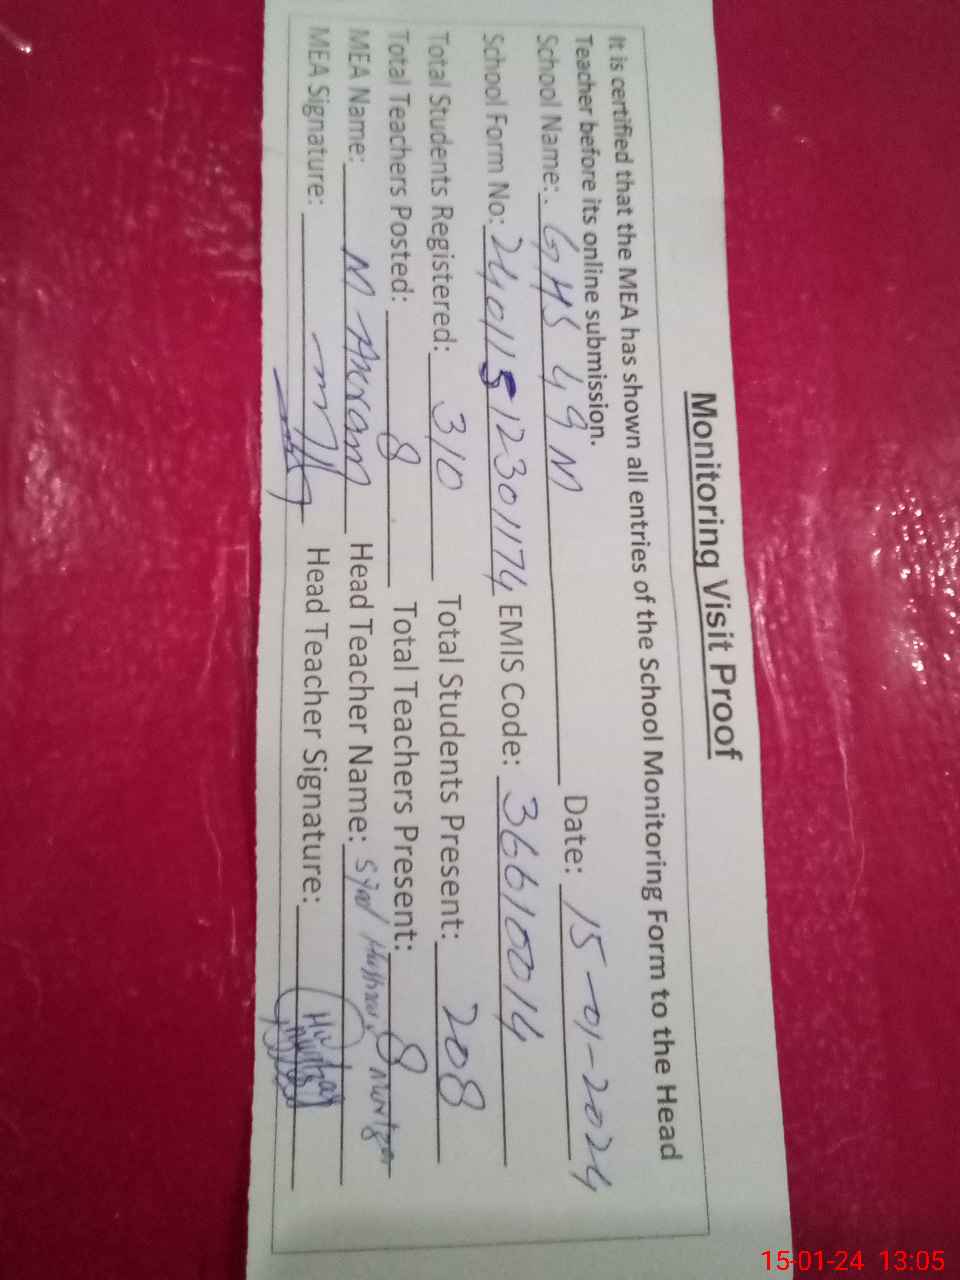 Monitoring Visit Proof
It is certified that the MEA has shown all entries of the School Monitoring Form to the Head
Teacher before its online submission.
School Name: GHS 49M Date: 15-01-2024
School Form No: 24011512301174 EMIS Code: 36610014
Total Students Registered: 310 Total Students Present: 208
Total Teachers Posted: 8 Total Teachers Present: 8
MEA Name: M Akram Head Teacher Name: Syed
MEA Signature: Head Teacher Signature:
15-01-24 13:05